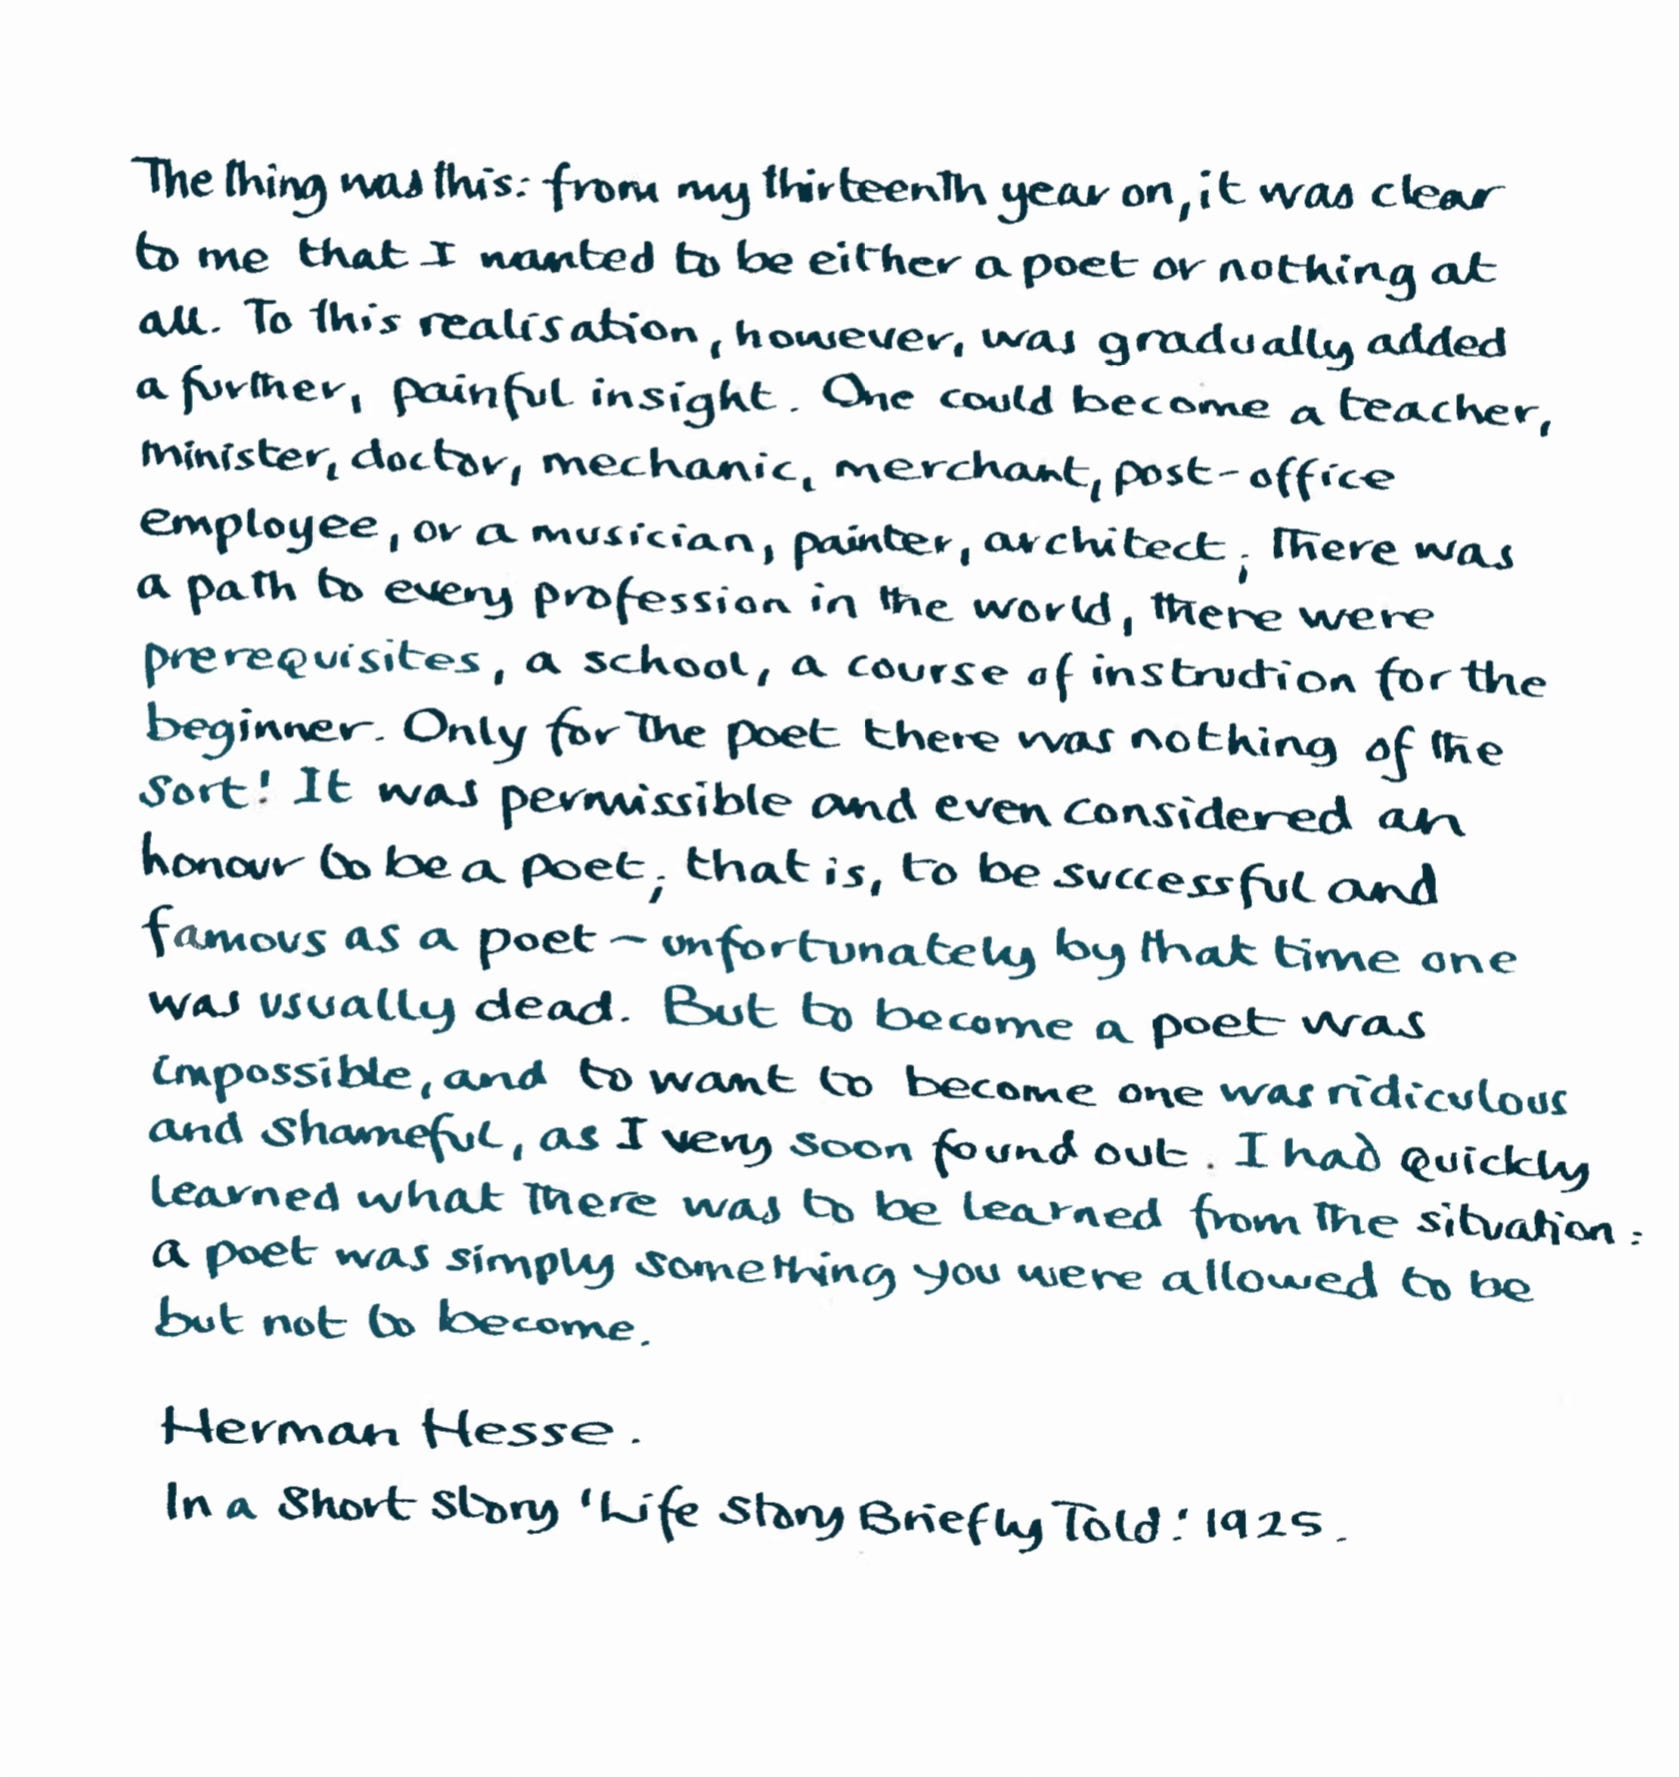 The thing was this: from my thirteenth year on, it was clear
to me that I wanted to be either a poet or nothing at
all. To this realisation, however, was gradually added
a further, painful insight. One could become a teacher,
minister, doctor, mechanic, merchant, post-office
employee, or a musician, painter, architect; there was
a path to every profession in the world, there were
prerequisites, a school, a course of instruction for the
beginner. Only for the poet there was nothing of the
sort! It was permissible and even considered an
honour to be a poet; that is, to be successful and
famous as a poet - unfortunately by that time one
was usually dead. But to become a poet was
impossible, and to want to become one was ridiculous
and shameful, as I very soon found out. I had quickly
learned what there was to be learned from the situation:
a poet was simply something you were allowed to be
but not to become.
Herman Hesse.
In a Short Story 'Life Story Briefly Told.' 1925.